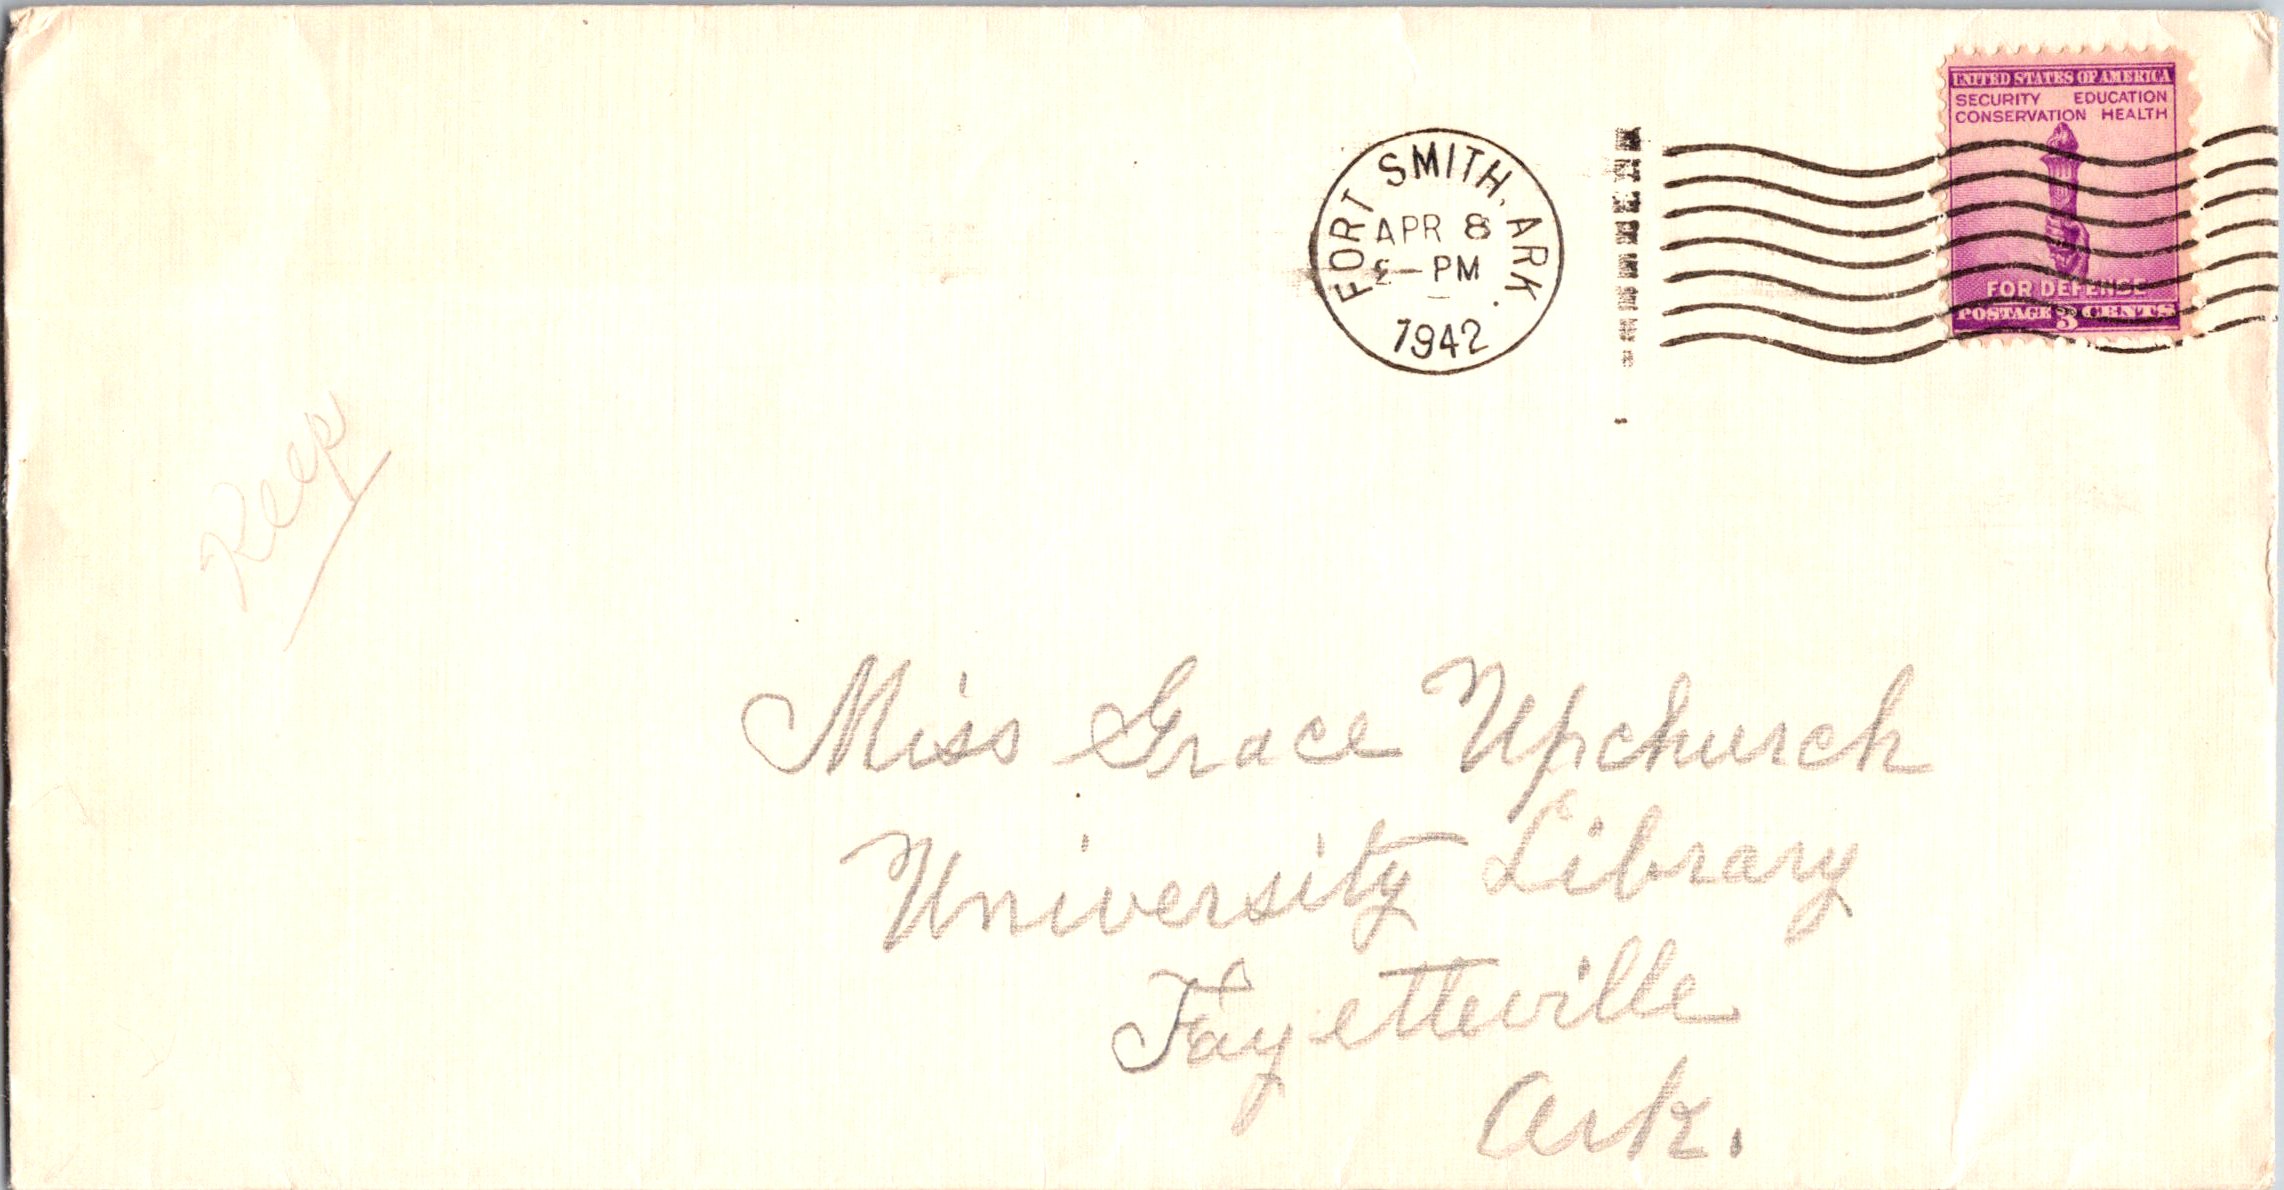 UNITED STATES OF AMERICA
SECURITY EDUCATION
CONSERVATION HEALTH
FOR DEFENSE
POSTAGE 3 CENTS
FORT SMITH, ARK.
APR 8
— PM
1942
Keep
Miss Grace Upchurch
University Library
Fayetteville
Ark.